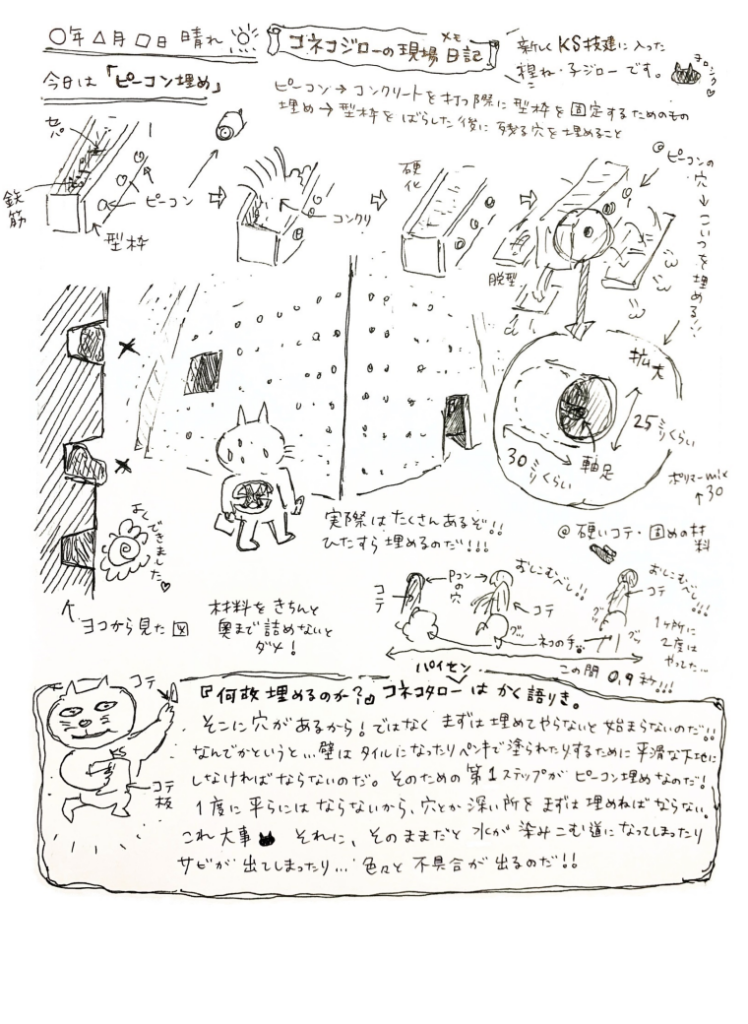 〇年△月□日 晴れ
コネコジローの現場メモ日記
新しくKS技建に入った
根ね・子ジローです。
ヨロシク♡
今日は「ピーコン埋め」
ピーコン→コンクリートを打つ際に型枠を固定するためのもの
埋め→型枠をばらした後に残る穴を埋めること
セパ
鉄筋
ピーコン
型枠
コンクリ
硬化
脱型
@ピーコンの穴→こいつを埋める!!
拡大
25ミリくらい
30ミリくらい
軸足
よくできました♡
↑ヨコから見た図
実際はたくさんあるぞ!!
ひたすら埋めるのだ!!!
材料をきちんと
奥まで詰めないと
ダメ!
ポリマーmix
↑30
@硬いコテ・固めの材料
コテ
Pコンの穴
おしこむべし!!
コテ
グッ
ネコの手
おしこむべし!!!
コテ
グッ
グッ
1ヶ所に
2度は
やってた…
この間0.9秒!!!
コテ
コテ板
KS
『何故埋めるのか?』コネコタローパイセンはかく語りき。
そこに穴があるから!ではなくまずは埋めてやらないと始まらないのだ!!
なんでかというと…壁はタイルになったりペンキで塗られたりするために平滑な下地に
しなければならないのだ。そのための第1ステップがピーコン埋めなのだ!
1度に平らにはならないから、穴とか深い所をまずは埋めねばならない。
これ大事 それに、そのままだと水が染みこむ道になってしまったり
サビが出てしまったり…色々と不具合が出るのだ!!